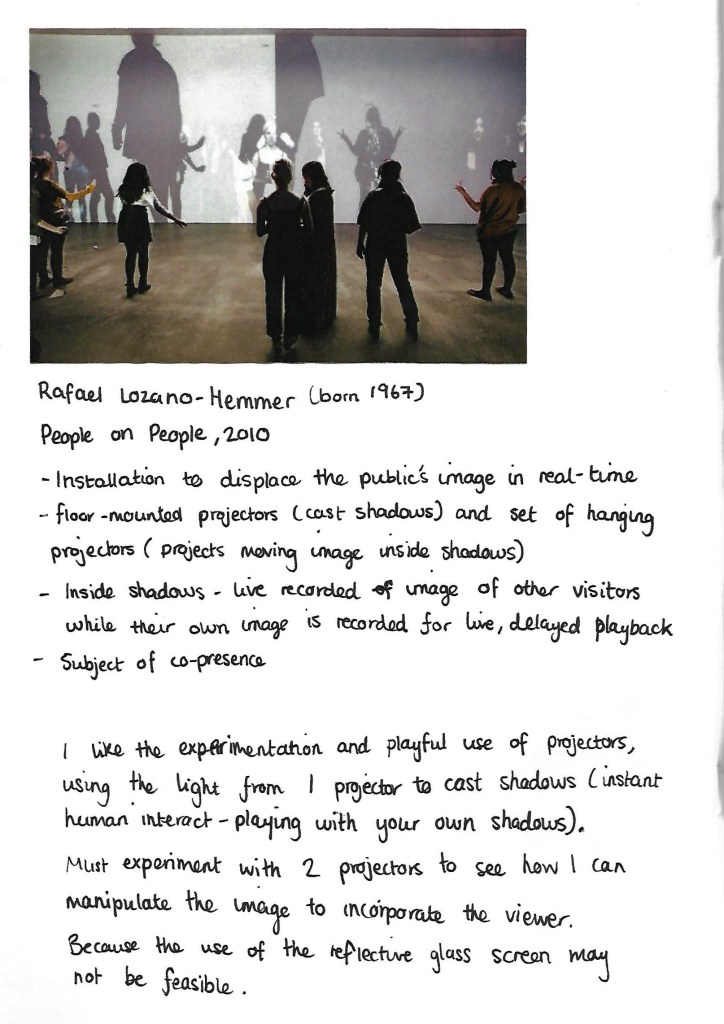 Rafael Lozano-Hemmer (born 1967)
People on People, 2010
- Installation to displace the public's image in real-time
- floor-mounted projectors (cast shadows) and set of hanging
projectors (projects moving image inside shadows)
- Inside shadows - live recorded of image of other visitors
while their own image is recorded for live, delayed playback
- Subject of co-presence
I like the experimentation and playful use of projectors,
using the light from 1 projector to cast shadows (instant
human interact - playing with your own shadows).
Must experiment with 2 projectors to see how I can
manipulate the image to incorporate the viewer.
Because the use of the reflective glass screen may
not be feasible.